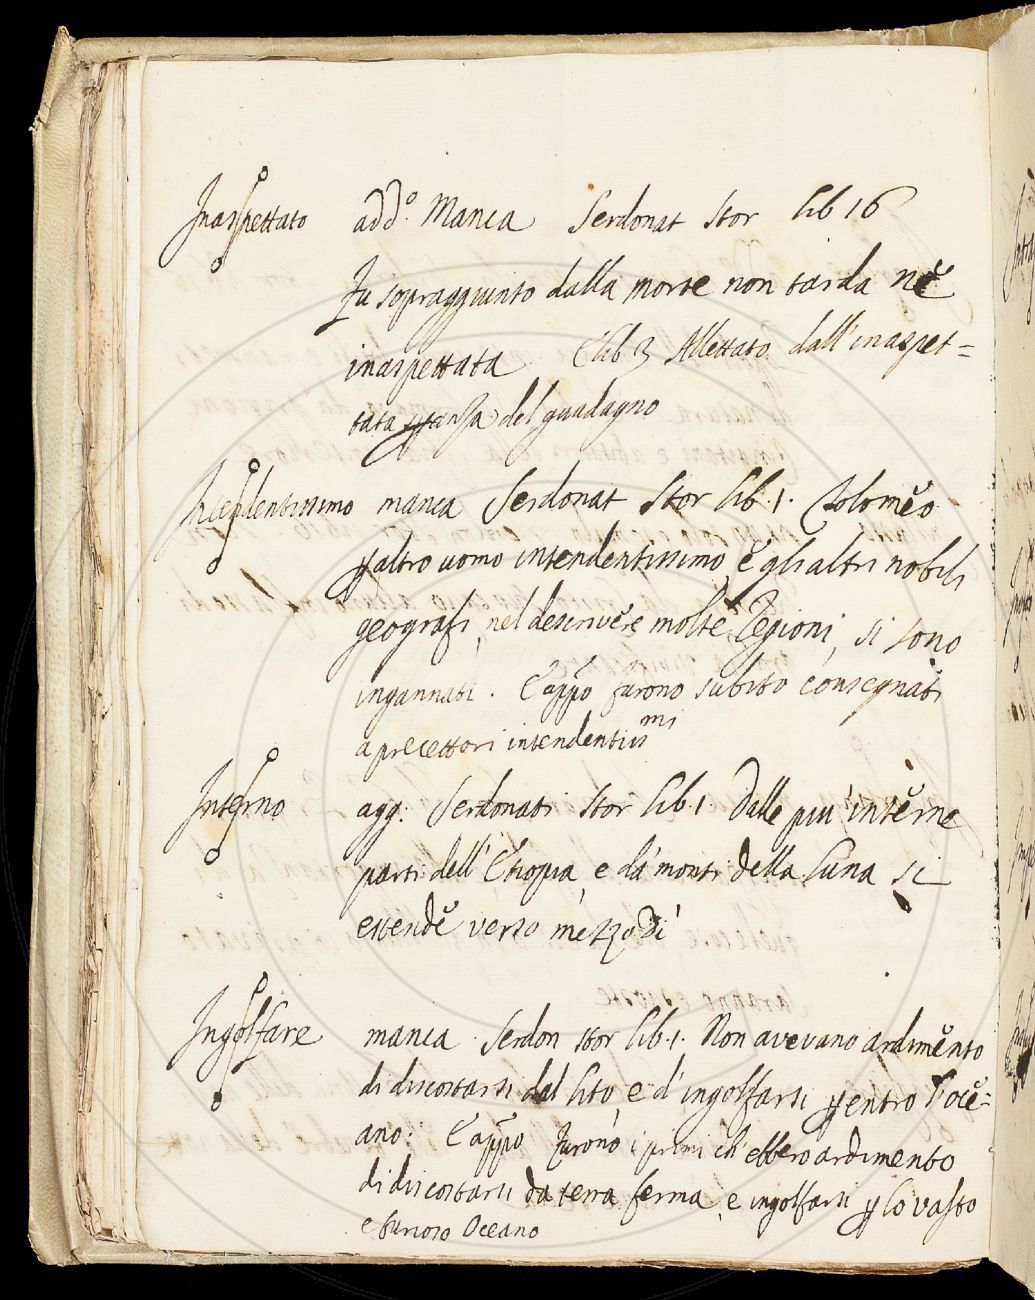 Inaspettato add.° Manca Serdonat Stor lib 16
Fu sopraggiunto dalla morte non tarda nè
inaspettata E lib 3 Allettato dall'inaspet=
tata del guadagno
Intendentissimo manca Serdonat Stor lib. 1. Tolomeo
ꝑ altro uomo intendentissimo, e gli altri nobili
geografi, nel descrivere molte Regioni, si sono
ingannati. E appō furono subito consegnati
a precettori intendentissmi
Interno agg: Serdonati Stor lib 1. dalle piu interne
parti dell'Etiopia, e da' monti della Luna si
estende verso mezzo dì
Ingolfare manca Serdon stor lib. 1. Non avevano ardimento
di discostarsi dal lito, e d'ingolfarsi ꝑ entro l'oce=
ano: E appō furono i primi ch'ebbero ardimento
di discostarsi da terra ferma, e ingolfarsi ꝑ lo vasto
e furioso Oceano